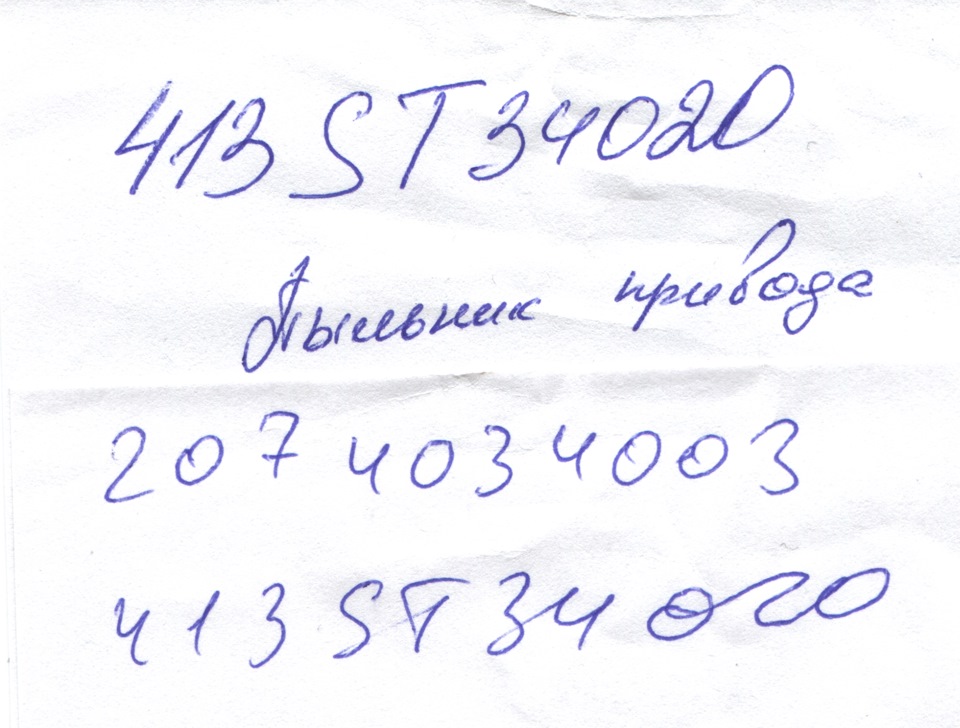 413ST34020
Пыльник привода
207 4034003
413ST34020